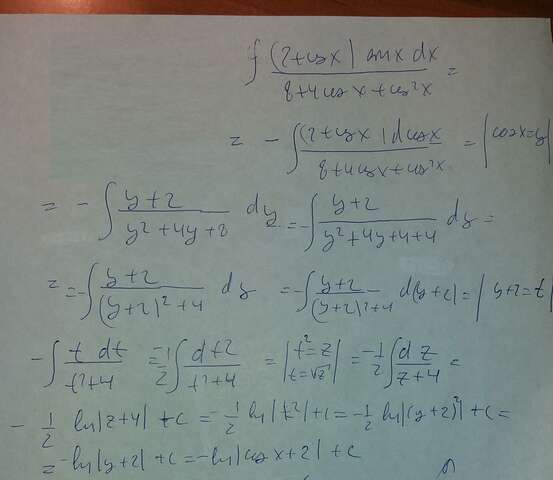 ∫ (2+cos x) sin x dx / (8+4cos x+cos²x) =
= - ∫ (2+cos x) d cos x / (8+4cos x+cos²x) = | cos x = y |
= - ∫ (y+2) / (y²+4y+8) dy = - ∫ (y+2) / (y²+4y+4+4) dy =
= - ∫ (y+2) / ((y+2)²+4) dy = - ∫ (y+2) / ((y+2)²+4) d(y+2) = | y+2 = t |
- ∫ t dt / (t²+4) = -1/2 ∫ dt² / (t²+4) = | t² = z t = √z | = -1/2 ∫ dz / (z+4) =
- 1/2 ln|z+4| + c = -1/2 ln|t²| + c = -1/2 ln|(y+2)²| + c =
= -ln|y+2| + c = -ln|cos x+2| + c